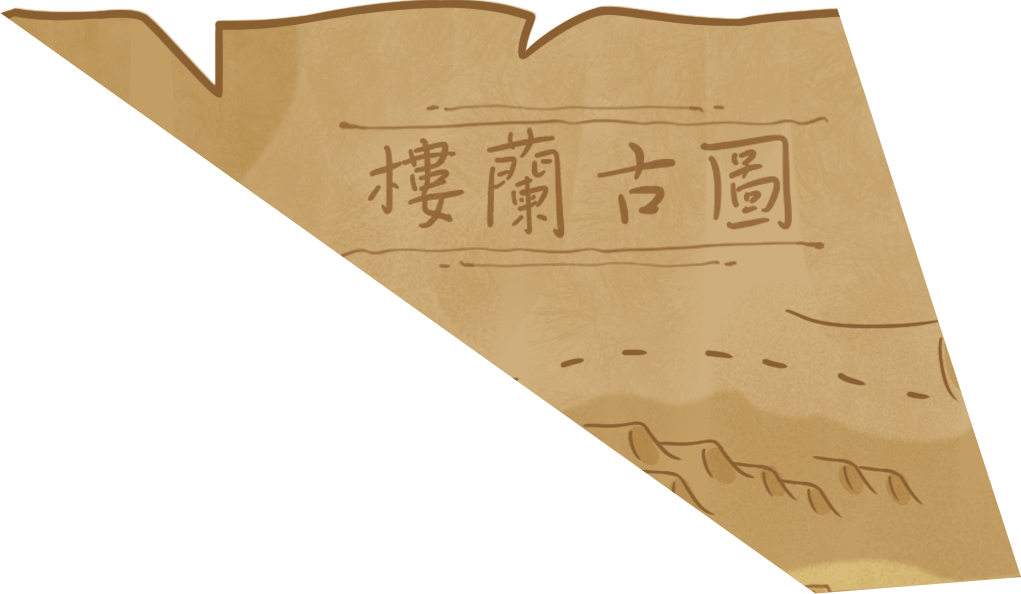 樓蘭古圖